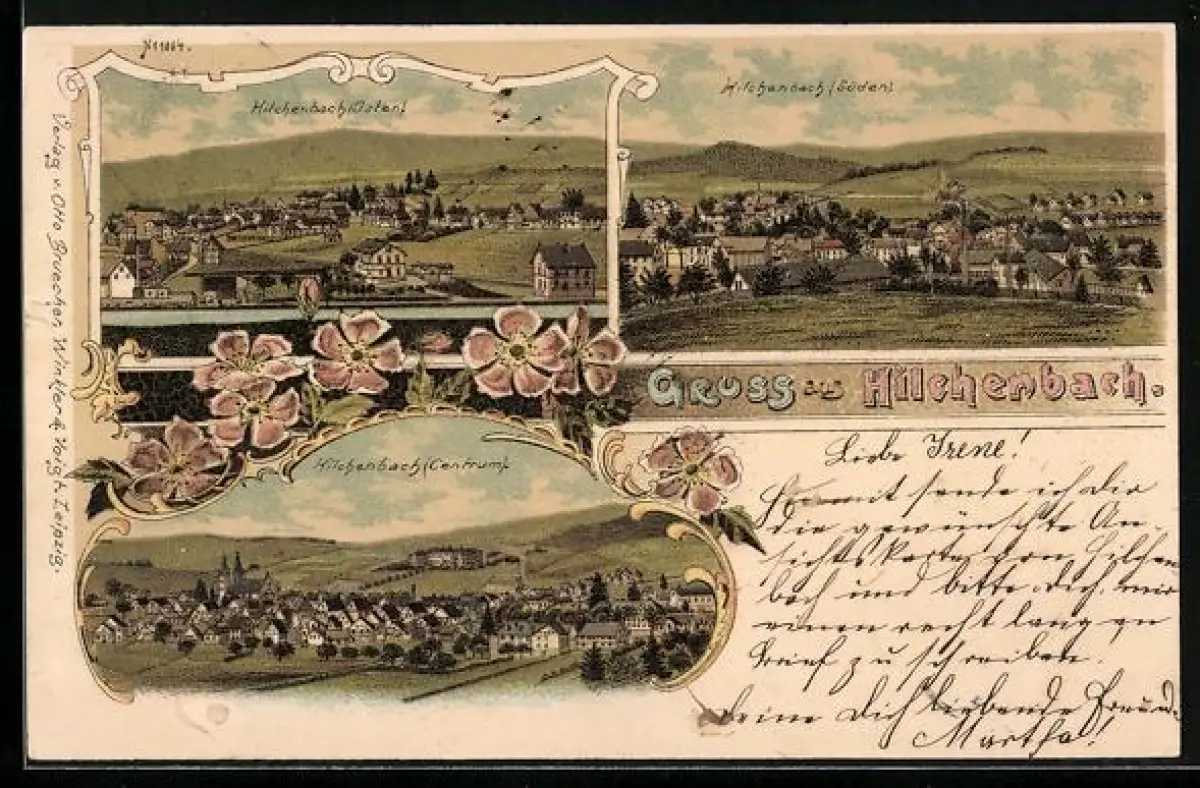 N 11884.
Hilchenbach (Osten)
Hilchenbach (Süden)
Verlag v. Otto Bruecher, Winkler & Voigt, Leipzig.
Gruss aus Hilchenbach.
Hilchenbach (Centrum)
Liebe Irene!
Hiermit sende ich dir
die gewünschte An-
sichtskarte von Hilchen
bach und bitte dich, mir
einen recht langen
Brief zu schreiben.
Deine Dich liebende Freund.
Martha!